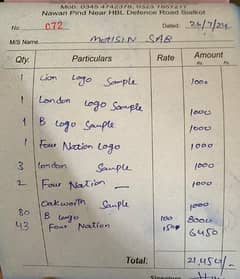 Mob: 0345 4742378, 0323 7857277
Nawan Pind Near HBL Defence Road Sialkot
No. 072 Dated: 24/7/24
M/S Name MOHSIN SAB
Qty. Particulars Rate Amount
Rs. Ps.
1 Lion Logo Sample 1000
1 London Logo Sample 1000
1 B Logo Sample 1000
1 Four Nation Logo 1000
3 London Sample 1000
2 Four Nation — 1000
Oakworth Sample 1000
80 B Logo 100 8000
43 Four Nation 150 6450
Total: 21,450/-
Signature